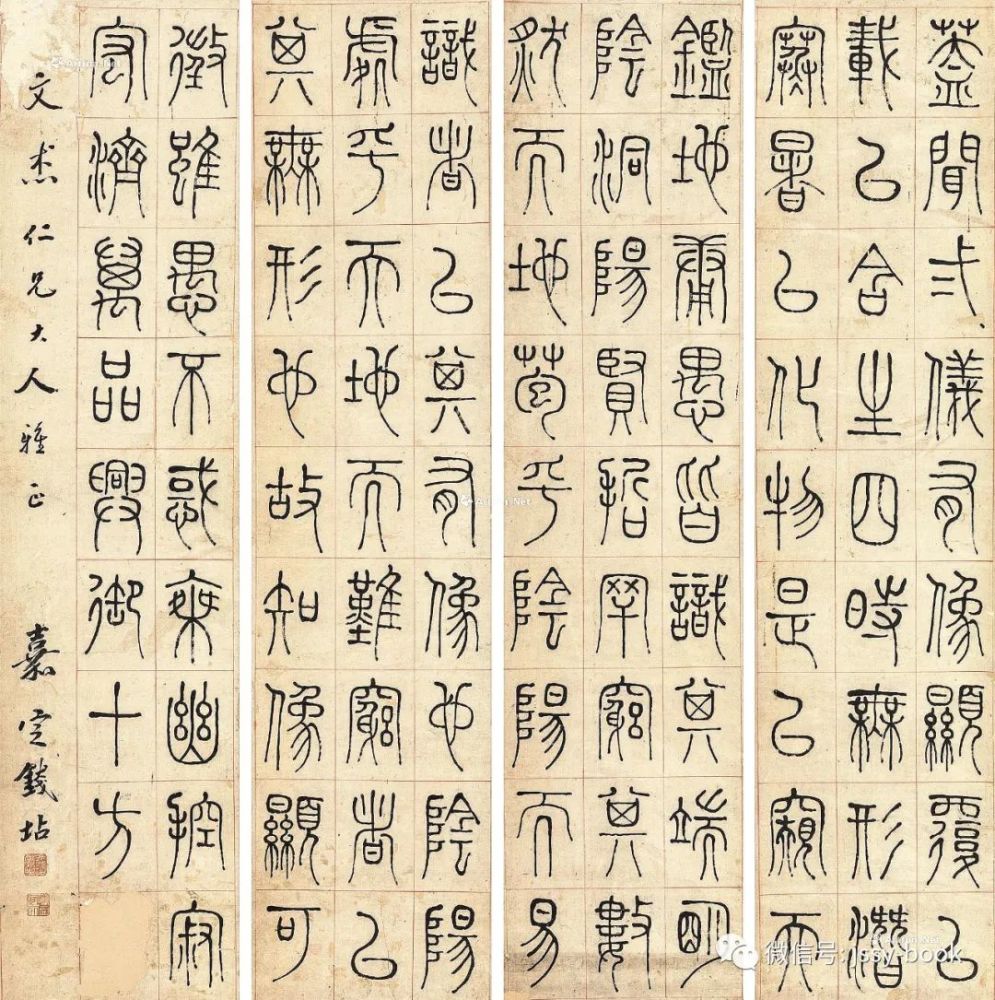 蓋聞弍儀有像顯覆以
載以含生四時無形潛
寒暑以化物是以窺天
鑑地庸愚皆識其端明
陰洞陽賢哲罕窮其數
然天地苞乎陰陽而易
識者以其有像也陰陽
處乎天地而難窮者以
其無形也故知像顯可
徵雖愚不惑乘幽控寂
宏濟萬品興御十方
文杰仁兄大人雅正 嘉定錢坫
微信号: jssy-book
Artron.Net